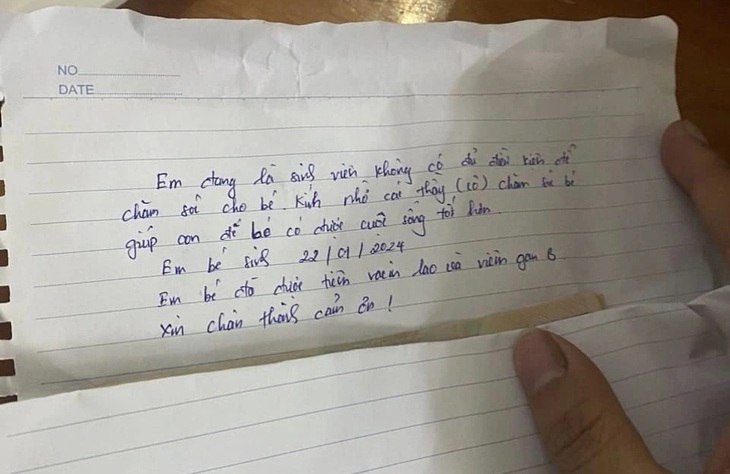 NO
DATE
Em đang là sinh viên không có đủ điều kiện để
chăm sóc cho bé. Kính nhờ các thầy (cô) chăm sóc bé
giúp con để bé có được cuộc sống tốt hơn.
Em bé sinh 22/01/2024
Em bé đã được tiêm vacin lao và viêm gan B
Xin chân thành cảm ơn!